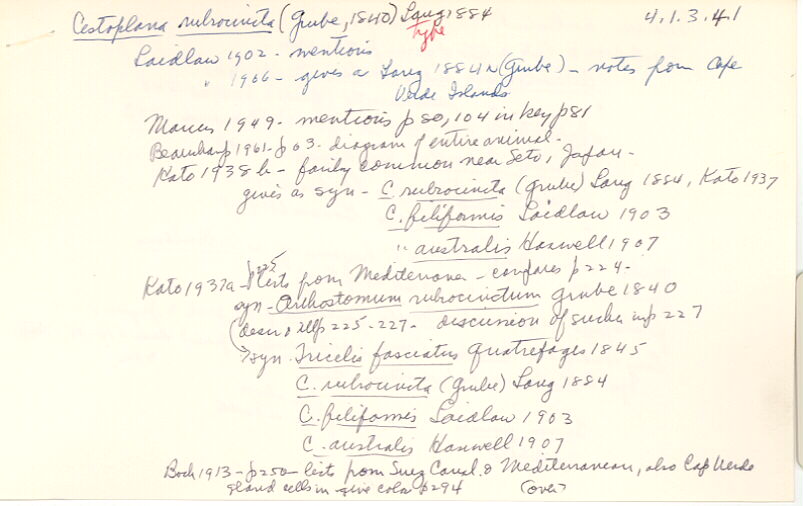 Cestoplana rubrocincta (Grube, 1840) Lang 1884 4.1.3.4.1
Type
Laidlaw 1902 - mentions
" 1906 - gives a Lang 1884 (Grube) - notes from Cape
Verde Islands
Marcus 1949 - mentions p 80, 104 in key p 81
Beauchamp 1961 - p 63. diagram of entire animal.
Kato 1938 b - fairly common near Seto, Japan -
gives as syn - C. rubrocincta (Grube) Lang 1884, Kato 1937
C. filiformis Laidlaw 1903
" australis Haswell 1907
p 225
Kato 1937a - lists from Mediterranea - compares p 224 -
syn - Orthostomum rubrocinctum Grube 1840
(descr & ill p 225-227 - discussion of sucker in p 227
syn. Tricelis fasciatus Quatrefages 1845
C. rubrocincta (Grube) Lang 1884
C. filiformis Laidlaw 1903
C. australis Haswell 1907
Bock 1913 - p 250 - lists from Suez Canal & Mediterranean, also Cap Verde
gland cells in give color p 294 (over)